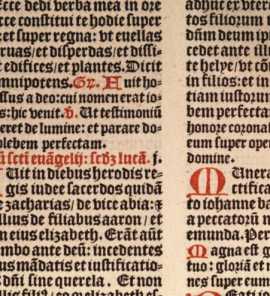 Ecce dedi verba mea in ore
ce constitui te hodie super
et super regna: vt euellas
ruas/ et disperdas/ et dissi
edifices/ et plantes. Dicit
mnipotens. Gr. Fuit ho
ssus a deo: cui nomen erat io
s: hic venit. v. Ut testimoniū
eret de lumine: et parare do
plebem perfectam.
ū scti euāgelij: scdz lucā. j.
Uit in diebus herodis re
gis iudee sacerdos quidā
e zacharias/ de vice abia: ⁊
illius de filiabus aaron/ et
en eius elizabeth. Erāt aūt
ambo ante deū: incedentes
us mādatis et iustificatio
dñi sine querela. Et non
adhuc ex vtero
tos filiorum
dñm deum ip
cedet ante ill
te helye/ vt cō
in filios: et in
tiam iustorum
bem perfectam
honore coronas
eum super oper
domine.
Munera
tifica
to iohanne ba
a peccatorū n
emunda. Per
Magna est g
tuo: gloriā et m
nes super eum